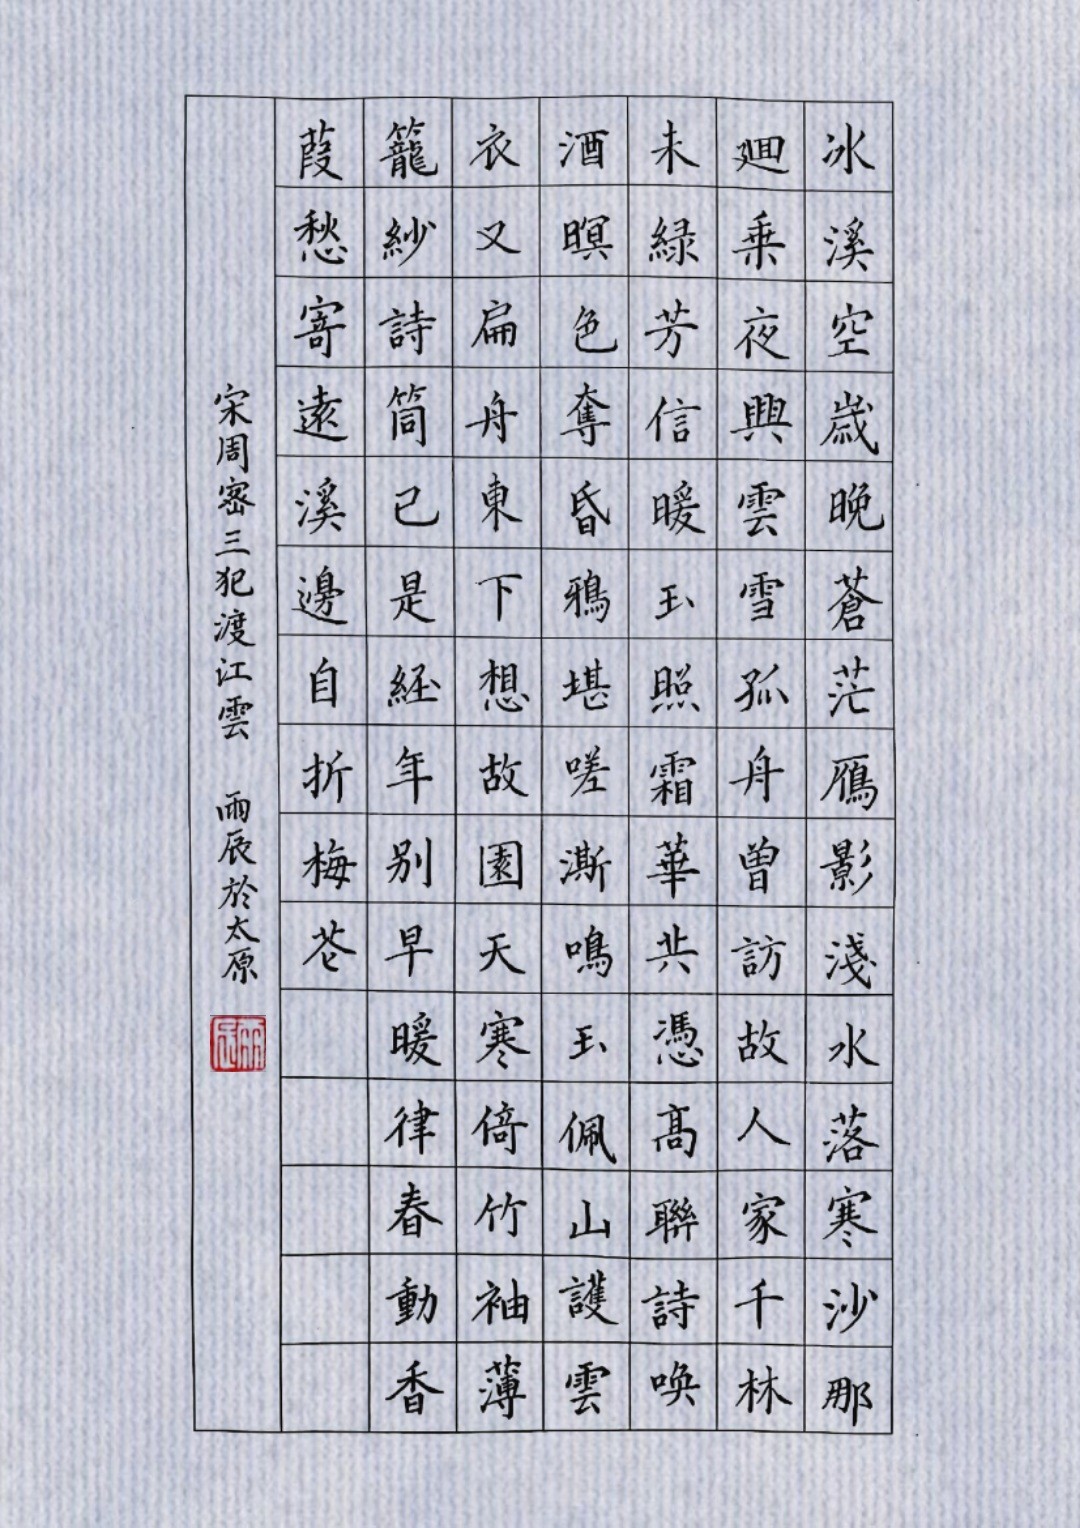 冰溪空歲晚蒼茫鴈影淺水落寒沙那
廻乗夜興雲雪孤舟曽訪故人家千林
未緑芳信暖玉照霜華共憑高聯詩喚
酒暝色奪昏鴉堪嗟澌鳴玉佩山護雲
衣又扁舟東下想故園天寒倚竹袖薄
籠紗詩筒已是経年别早暖律春動香
葭愁寄遠溪邊自折梅花
宋周密三犯渡江雲 雨辰於太原
雨辰